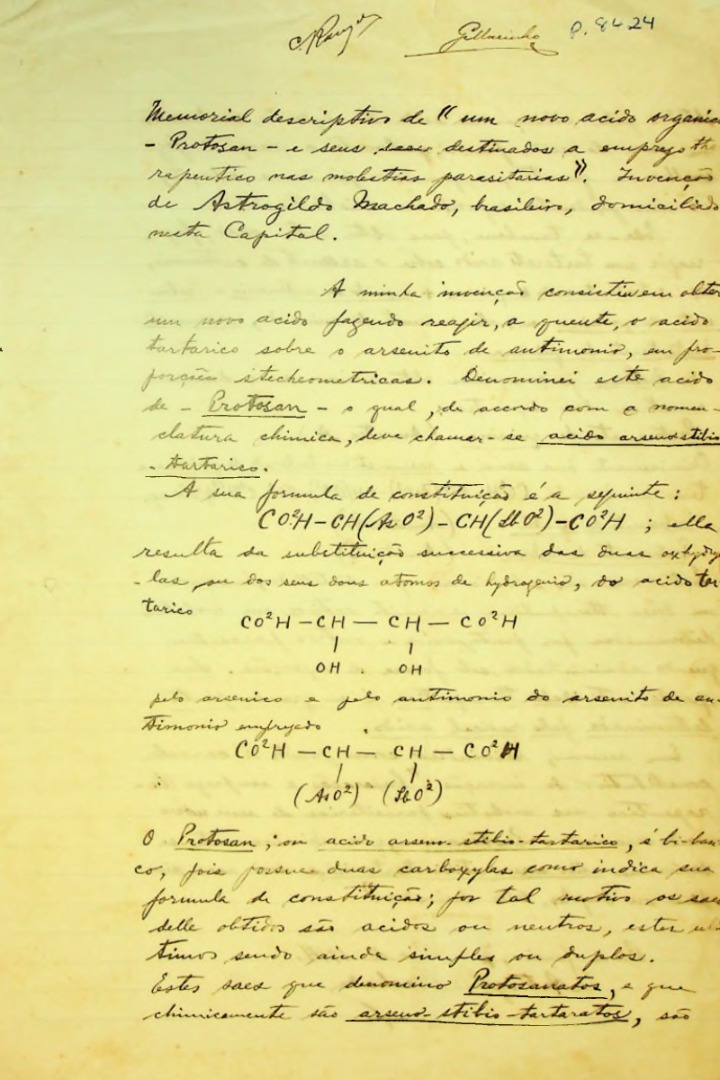 P. 8424
Memorial descriptivo de "um novo acido organic
- Protosan - e seus saes destinados a emprego the
rapeutico nas molestias parasitarias". Invenção
de Astrogildo Machado, brasileiro, domiciliado
nesta Capital.
A minha invenção consistiu em obter
um novo acido fazendo reagir, a quente, o acido
tartarico sobre o arsenito de antimonio, em pro-
porções stecheometricas. Denominei este acido
de - Protosan - o qual, de accordo com a nomen-
clatura chimica, deve chamar-se acido arseno-stibio
- tartarico.
A sua formula de constituição é a seguinte:
CO²H-CH(AsO²)-CH(SbO²)-CO²H ; ella
resulta da substituição successiva das duas oxhydry
-las, ou dos seus dous atomos de hydrogenio, do acido tar
tarico
CO²H - CH - CH - CO²H
OH . OH
pelo arsenico e pelo antimonio do arsenito de an-
timonio empregado
CO²H - CH - CH - CO²H
(AsO²) (SbO²)
O Protosan, ou acido arseno-stibio-tartarico, é bi-basi
co, pois possue duas carboxylas como indica sua
formula de constituição; por tal motivo os saes
delle obtidos são acidos ou neutros, estes ul
timos sendo ainda simples ou duplos.
Estes saes que denomino Protosanatos, e que
chimicamente são arseno-stibio-tartaratos, são